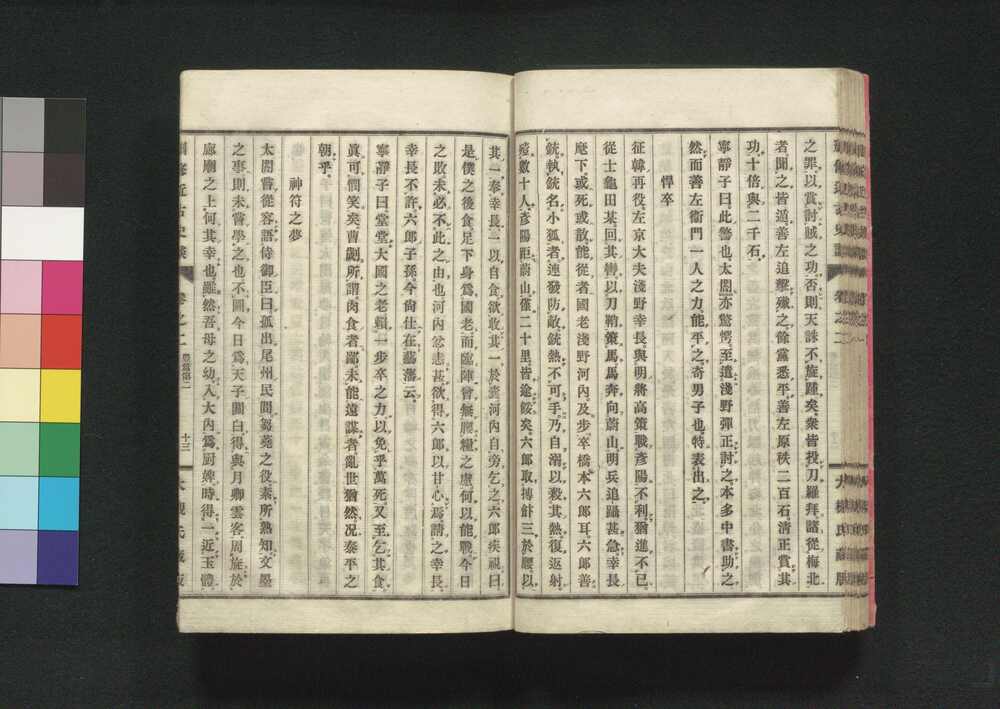 之罪以賞討賊之功否則天誅不旋踵矣衆皆投刀羅拜諸從梅北
者聞之皆遁善左追擊殲之餘黨悉平善左原秩二百石清正賞其
功十倍與二千石
寧靜子曰此警也太閤亦驚愕至遣淺野彈正討之本多中書助之
然而善左衞門一人之力能平之奇男子也特表出之
悍卒
征韓再役左京大夫淺野幸長與明將高策戰彥陽不利猶進不已
從士龜田某回其轡以刀鞘策馬馬奔向蔚山明兵追躡甚急幸長
麾下或死或散能從者國老淺野河內及步卒橋本六郎耳六郎善
銃執銃名小狐者連發防敵銃熱不可手乃自溺以殺其熱復返射
殪數十人彥陽距蔚山僅二十里皆途餒矣六郎取摶飰三於腰以
其一奉幸長一以自食欲收其一於嚢河內自旁乞之六郎疾視曰
是僕之後食足下身爲國老而臨陣曾無腰糧之慮何以能戰今日
之敗未必不此之由也河內忿恚甚欲得六郎以甘心焉請之幸長
幸長不許六郎子孫今尙仕在藝藩云
寧靜子曰堂堂大國之老賴一步卒之力以免乎萬死又至乞其食
眞可憫笑矣曹劌所謂肉食者鄙未能遠謀者亂世猶然况泰平之
朝乎
神符之夢
太閤嘗從容語侍御臣曰孤出尾州民間芻蕘之役素所熟知文墨
之事則未嘗學之也不圖今日爲天子關白得與月卿雲客周旋於
廊廟之上何其幸也雖然吾母之幼入大內爲厨婢時得一近玉體
近古史談
卷之二
豐篇第二
十三
大槻氏藏版